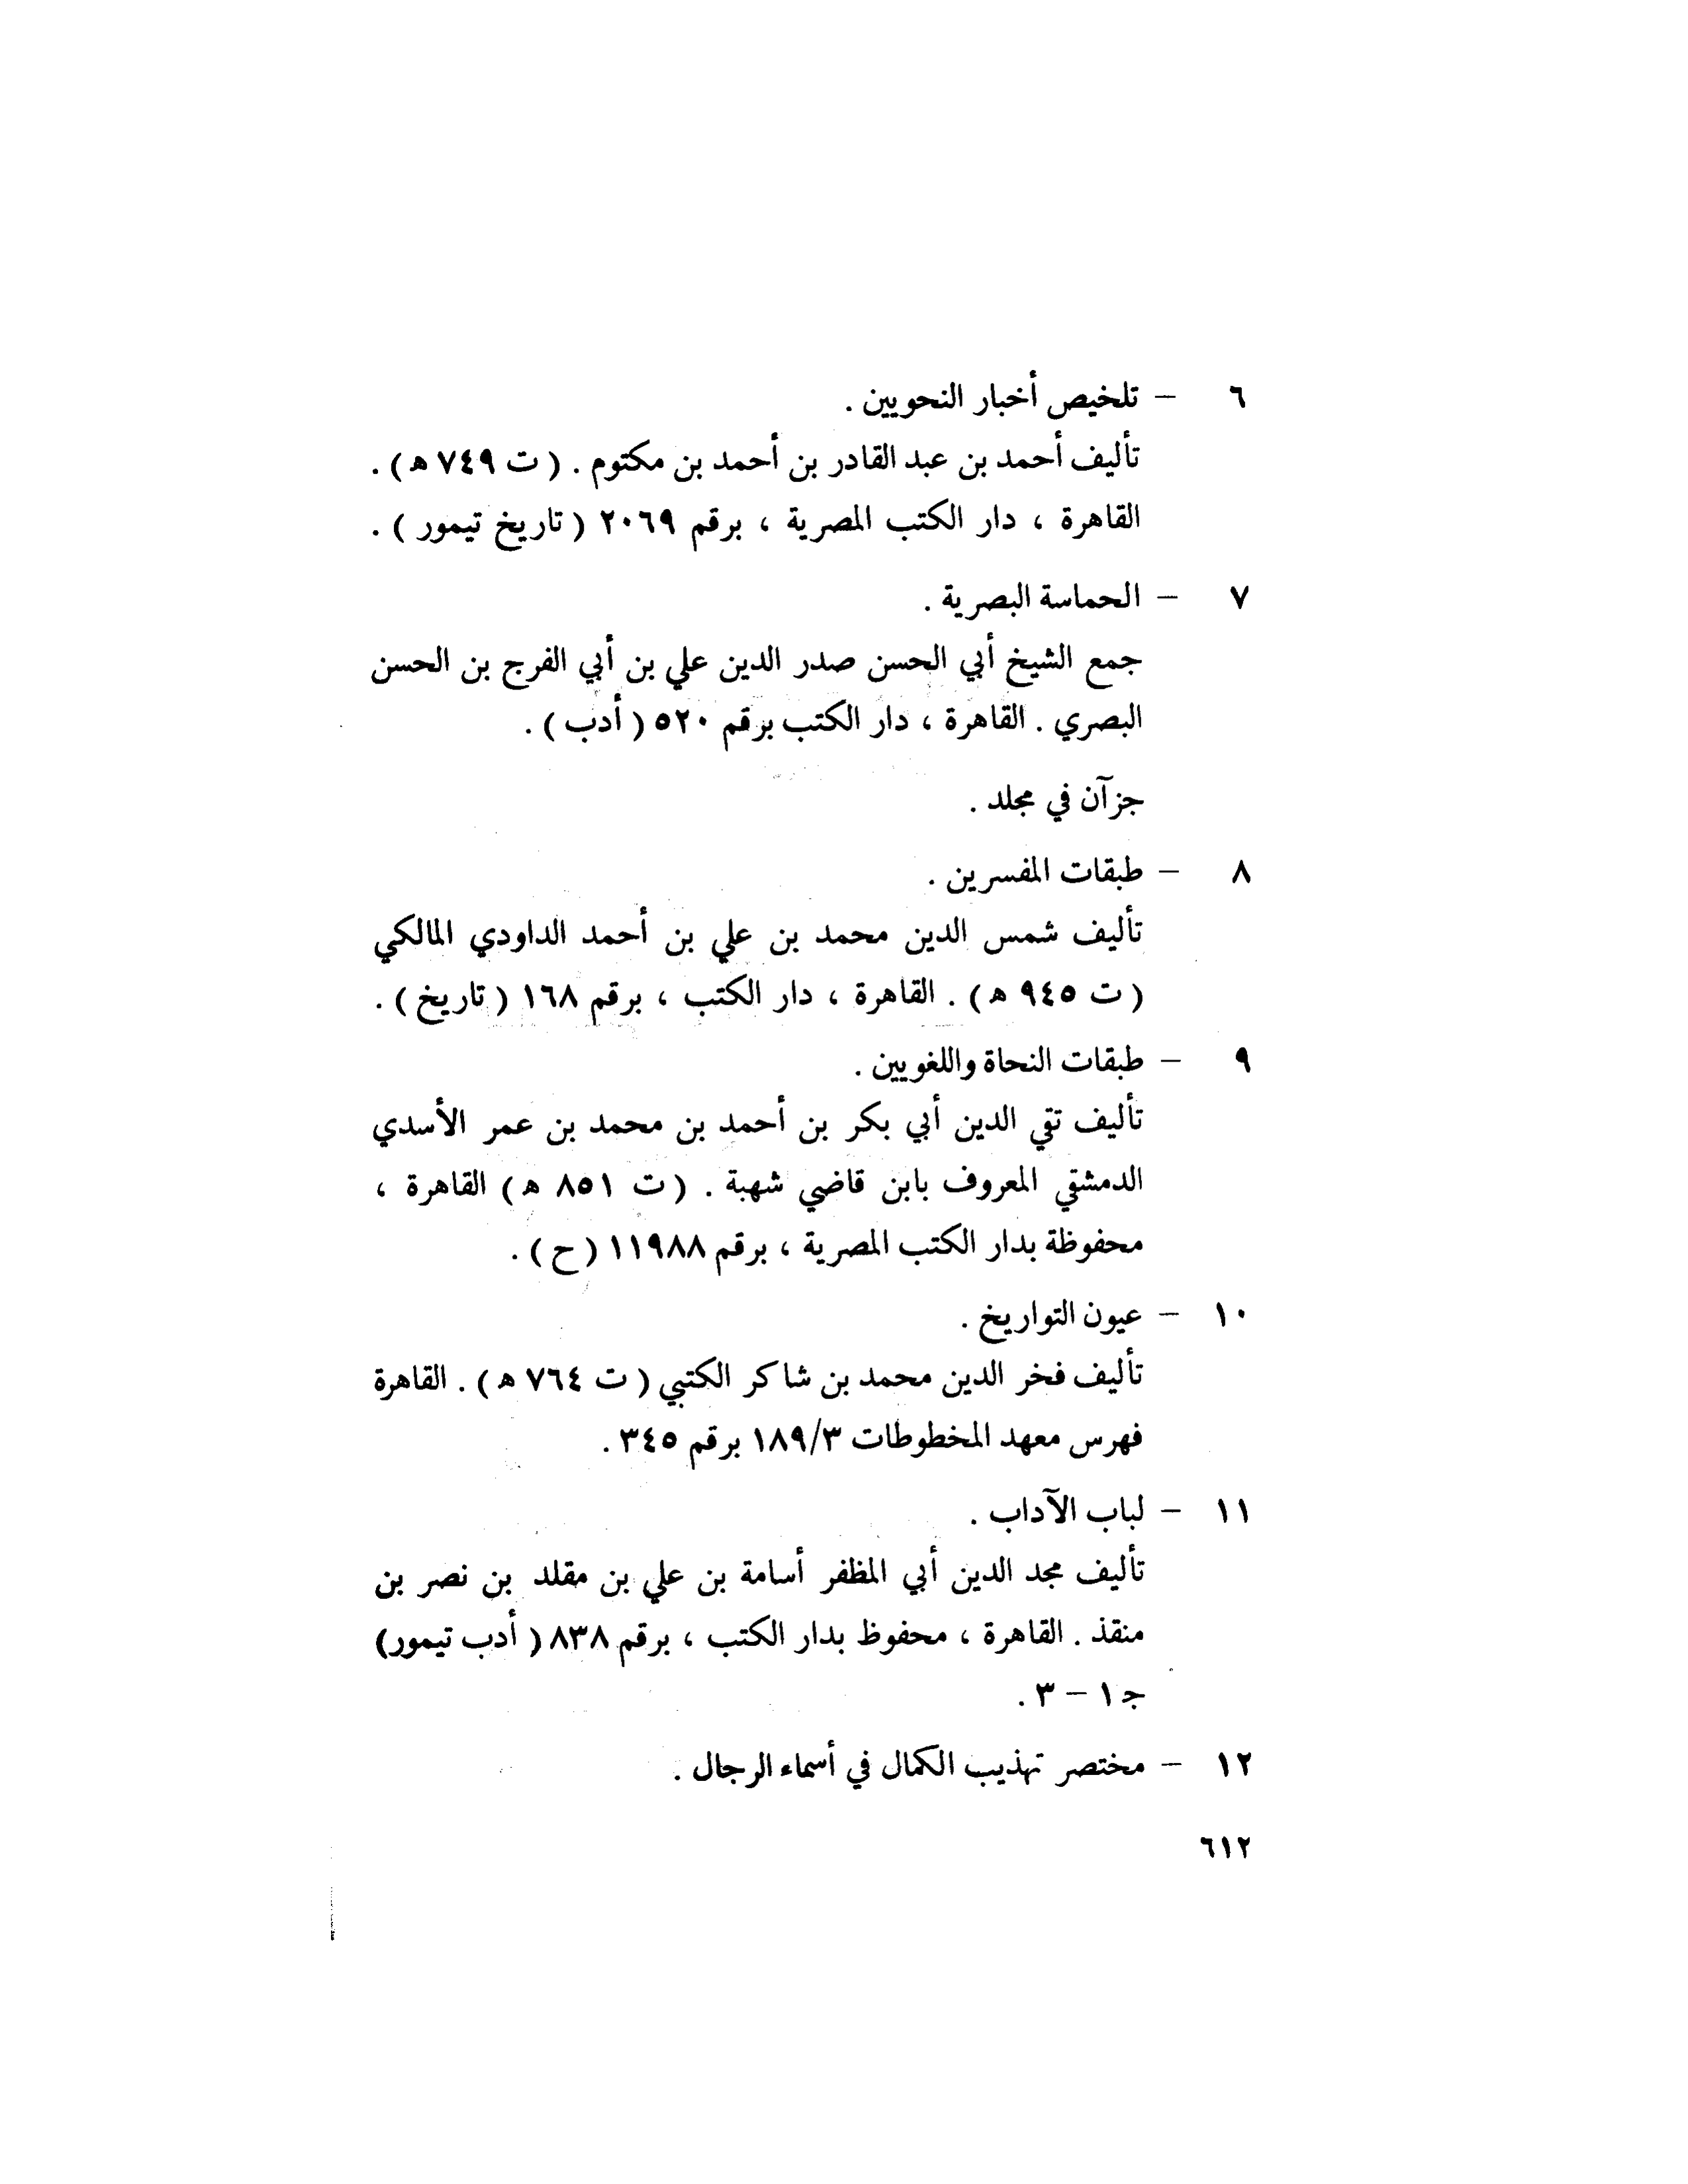 ٦ – تلخيص أخبار النحويين .
تأليف أحمد بن عبد القادر بن أحمد بن مكتوم . ( ت ٧٤٩ ه‍ ) .
القاهرة ، دار الكتب المصرية ، برقم ٢٠٦٩ ( تاريخ تيمور ) .
٧ – الحماسة البصرية .
جمع الشيخ أبي الحسن صدر الدين علي بن أبي الفرج بن الحسن
البصري . القاهرة ، دار الكتب برقم ٥٢٠ ( أدب ) .
جزآن في مجلد .
٨ – طبقات المفسرين .
تأليف شمس الدين محمد بن علي بن أحمد الداودي المالكي
( ت ٩٤٥ ه‍ ) . القاهرة ، دار الكتب ، برقم ١٦٨ ( تاريخ ) .
٩ – طبقات النحاة واللغويين .
تأليف تقي الدين أبي بكر بن أحمد بن محمد بن عمر الأسدي
الدمشقي المعروف بابن قاضي شهبة . ( ت ٨٥١ ه‍ ) القاهرة ،
محفوظة بدار الكتب المصرية ، برقم ١١٩٨٨ ( ح ) .
١٠ – عيون التواريخ .
تأليف فخر الدين محمد بن شاكر الكتبي ( ت ٧٦٤ ه‍ ) . القاهرة
فهرس معهد المخطوطات ١٨٩/٣ برقم ٣٤٥ .
١١ – لباب الآداب .
تأليف مجد الدين أبي المظفر أسامة بن علي بن مقلد بن نصر بن
منقذ . القاهرة ، محفوظ بدار الكتب ، برقم ٨٣٨ ( أدب تيمور)
ج‍ ١ – ٣ .
١٢ – مختصر تهذيب الكمال في أسماء الرجال .
٦١٢